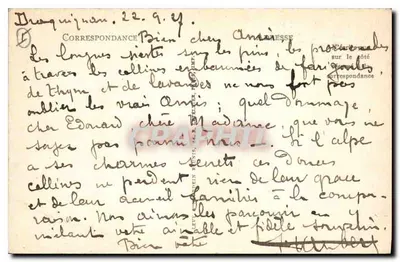 Draguignan. 22.9.27.
CORRESPONDANCE
Bien chers Amis
Les longues siestes sous les pins, les promenades
à travers les collines embaumées de farigoules,
de thym, et de lavandes ne nous font pas
oublier les vrais Amis ; quel dommage,
cher Edouard chère Madame que vous ne
soyez pas parmi nous. Si l'alpe
a ses charmes secrets ces Douces
collines ne perdent rien de leur grace
et de leur accueil familier à la compa-
raison. Nous aimons les parcourir en y
mêlant votre aimable et fidèle souvenir.
Bien vôtre